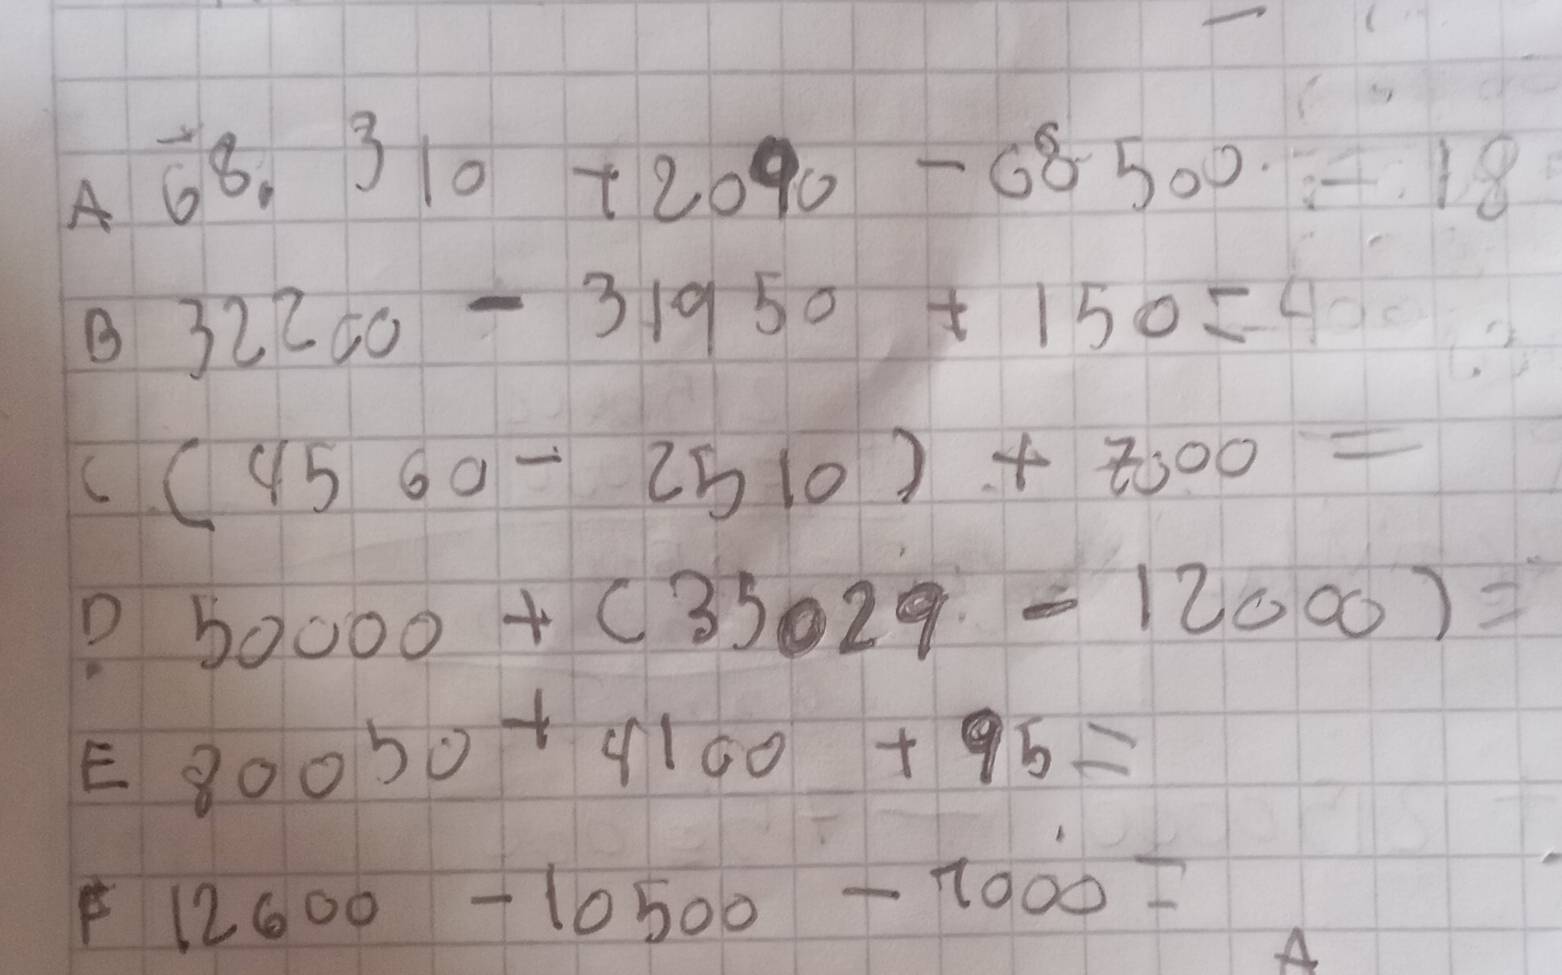 A 68.310 + 2090 - 68500 = 18
B 32200 - 31950 + 150 = 400
C (4560 - 2510) + 7000 =
D. 50000 + (35029 - 12000) =
E 80050 + 4100 + 95 =
F 12600 - 10500 - 1000 =
A